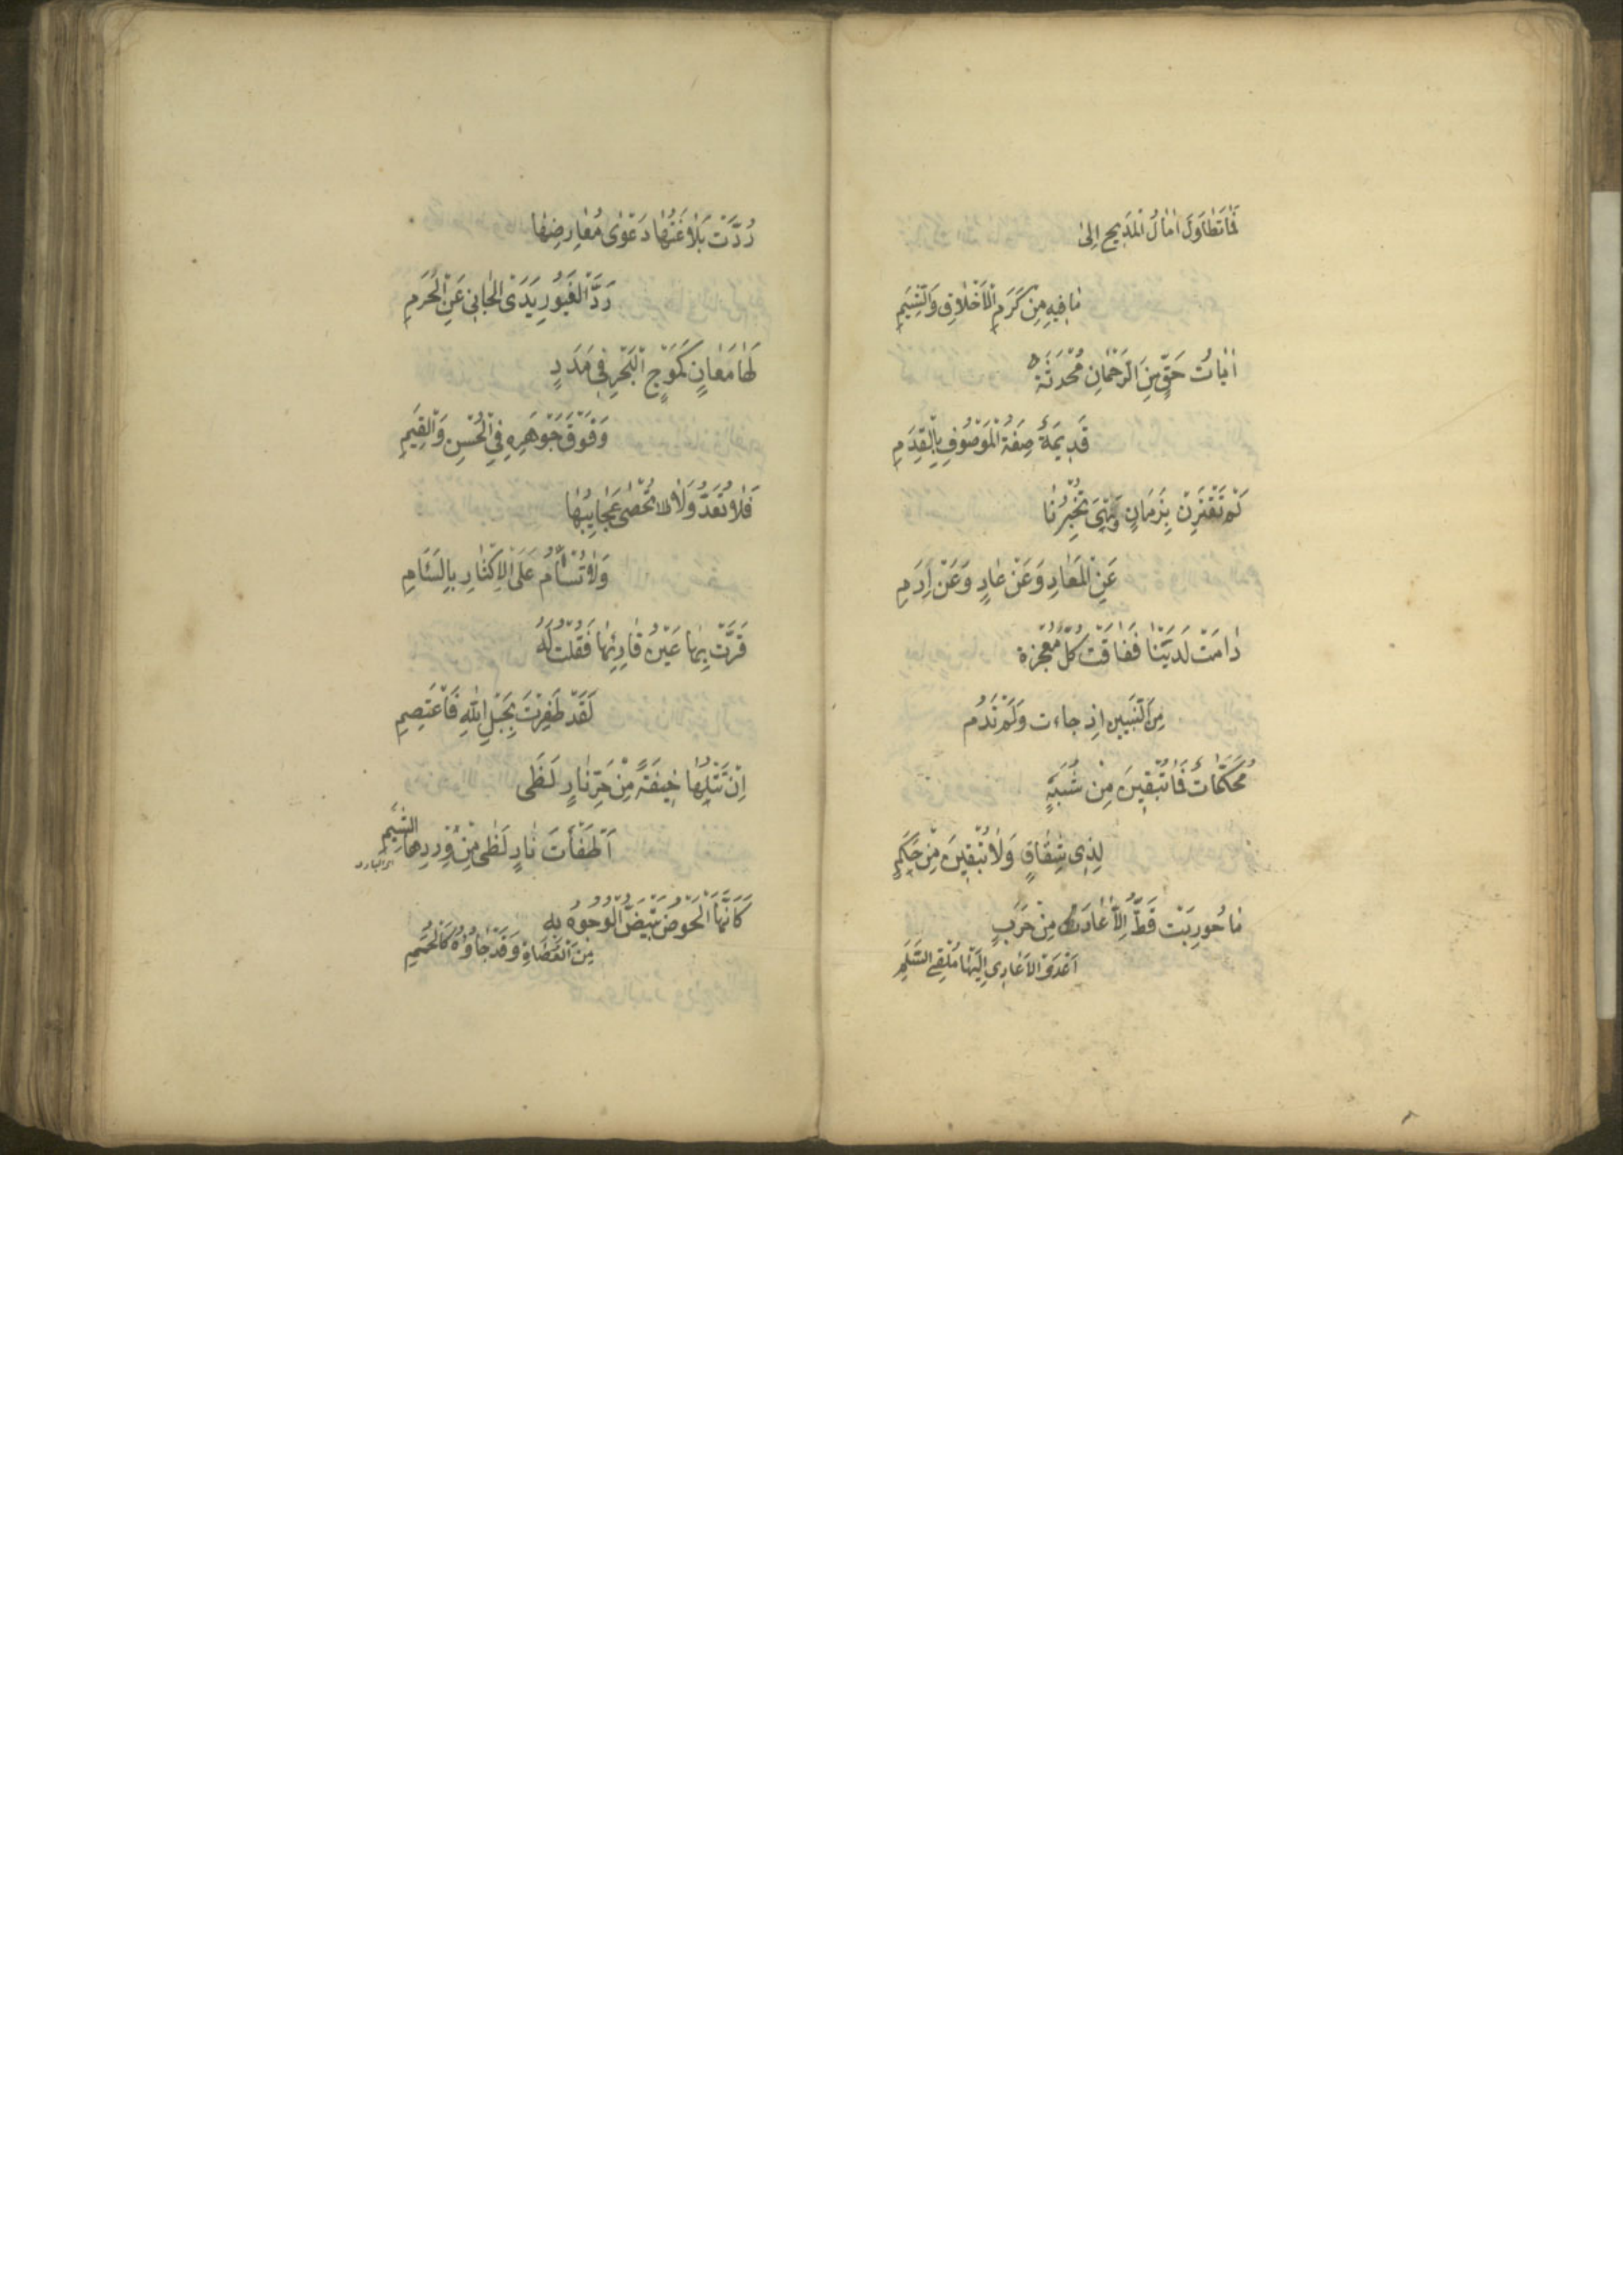 فَمَا تَطَاوَلَ اٰمَالُ الْمَدِيحِ اِلىٰ
مَا فِيهِ مِنْ كَرَمِ الْاَخْلَاقِ وَالشِّيَمِ
اٰيَاتُ حَقٍّ مِنَ الرَّحْمٰنِ مُحْدَثَةٌ
قَدِيمَةٌ صِفَةُ الْمَوْصُوفِ بِالْقِدَمِ
لَمْ تَقْتَرِنْ بِزَمَانٍ وَهْيَ تُخْبِرُنَا
عَنِ الْمَعَادِ وَعَنْ عَادٍ وَعَنْ اِرَمِ
دَامَتْ لَدَيْنَا فَفَاقَتْ كُلَّ مُعْجِزَة
مِنَ النَّبِيّينِ اِذ جاءت وَلَمْ تَدُم
مُحَكَّمَاتٌ فَمَا تُبْقِينَ مِنْ شُبَهٍ
لِذِى شِقَاقٍ وَلَا تُبْقِينَ مِنْ حَكَمِ
مَا حُورِبَتْ قَطُّ اِلَّا عَادَ مِنْ حَرَبٍ
اَعْدَى الْاَعَادِي اِلَيْهَا مُلْقِيَ السَّلَمِ
رُدَّتْ بَلَاغَتُهَا دَعْوٰى مُعَارِضِهَا
رَدَّ الْغَيُورِ يَدَى الْجَانِي عَنِ الْحُرَمِ
لَهَا مَعَانٍ كَمَوْجِ الْبَحْرِ فِي مَدَدٍ
وَفَوْقَ جَوْهَرِهِ فِي الْحُسْنِ وَالْقِيَمِ
فَلَا تُعَدُّ وَلَا تُحْصٰى عَجَايِبُهَا
وَلَا تُسْأَمُ عَلَى الْاِكْثَارِ بِالسَّئَامِ
قَرَّتْ بِهَا عَيْنُ قَارِئِهَا فَقُلْتُ لَهُ
لَقَدْ ظَفِرْتَ بِحَبْلِ اللهِ فَاعْتَصِمِ
اِنْ تَتْلُهَا خِيفَةً مِنْ حَرِّ نَارِ لَظَى
اَطْفَأْتَ نَارَ لَظٰى مِنْ وِرْدِهَا الشَّبِمِ
اى البارد
كَاَنَّهَا الْحَوْضُ تَبْيَضُّ الْوُجُوهُ بِهِ
مِنَ الْعُصَاةِ وَقَدْ جَاؤُهُ كَالْحُمَمِ